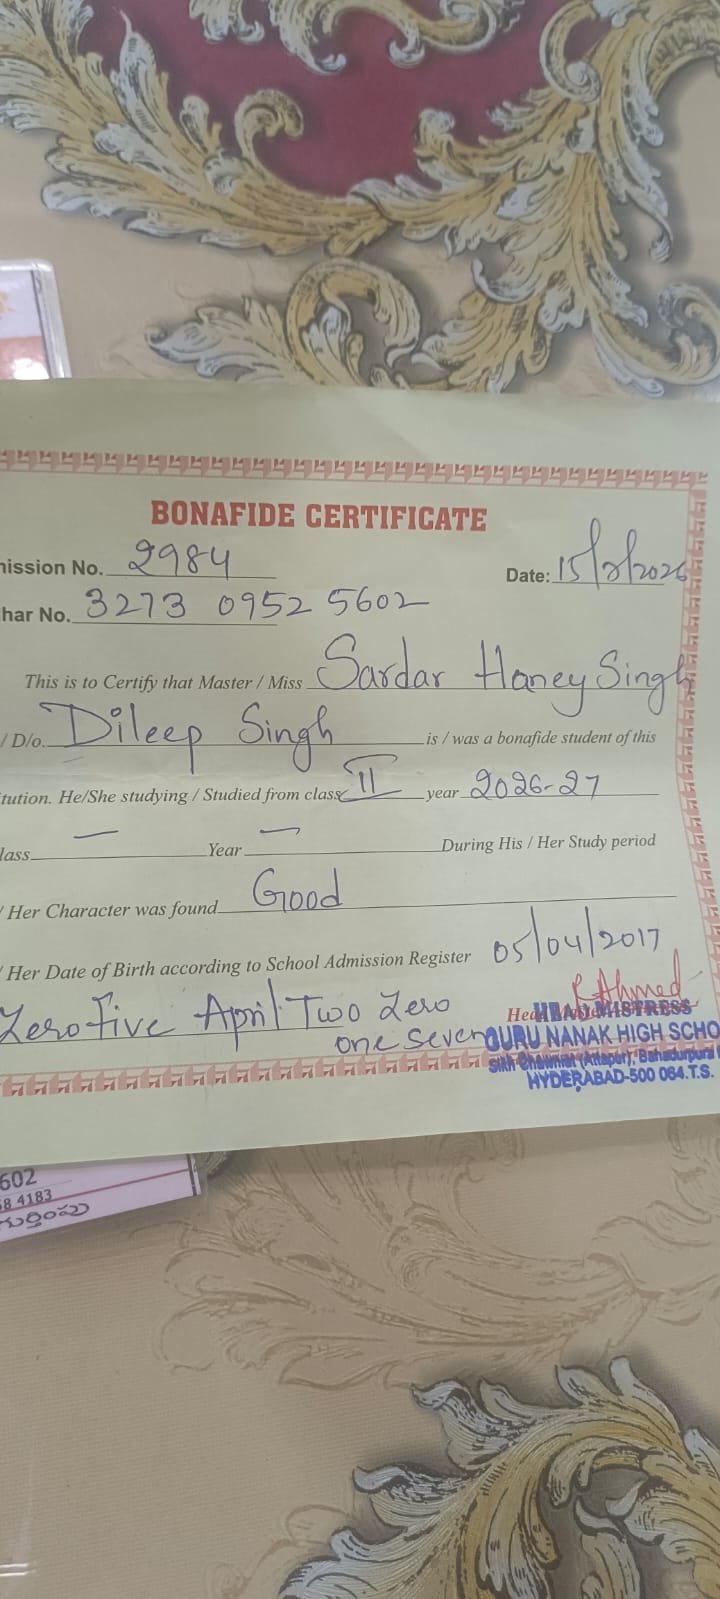 BONAFIDE CERTIFICATE
ission No. 2984 Date: 15/7/2026
har No. 3273 0952 5602
This is to Certify that Master / Miss Sardar Haney Singh
/ D/o. Dileep Singh is / was a bonafide student of this
tution. He/She studying / Studied from class II year 2026-27
lass — Year — During His / Her Study period
/ Her Character was found Good
/ Her Date of Birth according to School Admission Register 05/04/2017
Zero Five April Two Zero
one seven
HEAD MISTRESS
GURU NANAK HIGH SCHO
Sikh Chawni (Attapur), Bahadurpura
HYDERABAD-500 064.T.S.
602
8 4183